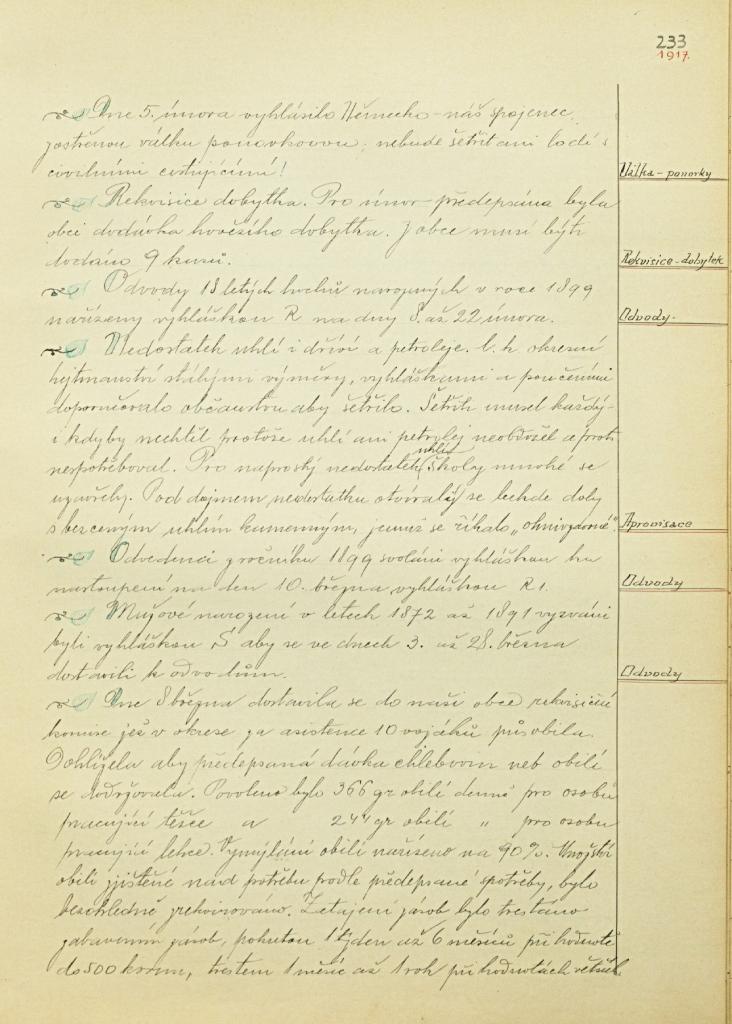 233
1917.
Dne 5. února vyhlásilo Německo - náš spojenec,
zostřenou válku ponorkovou; nebude šetřit ani lodí s
civilními cestujícími!
Válka - ponorky
Rekvisice dobytka. Pro únor předepsána byla
obci dodávka hovězího dobytka. Z obce musí býti
dodáno 9 kusů.
Rekvisice - dobytek
Odvody 18 letých hochů narozených v roce 1899
nařízeny vyhláškou R na dny 8. až 22 února.
Odvody.
Nedostatek uhlí i dříví a petroleje. C. k. okresní
hejtmanství stálými výměry, vyhláškami a poučeními
doporučovalo občanstvu aby šetřilo. Šetřit musel každý -
i kdyby nechtěl protože uhlí ani petrolej neobdržel a proto
nespotřeboval. Pro naprostý nedostatek uhlí školy mnohé se
uzavřely. Pod dojmem nedostatku otvíraly se leckde doly
s bezceným uhlím kamenným, jemuž se říkalo „ohnivzdorné".
Aprovisace
Odvedenci z ročníku 1899 svoláni vyhláškou ku
nastoupení na den 10. března vyhláškou R 1.
Odvody
Mužové narození v letech 1872 až 1891 vyzváni
byli vyhláškou Š aby se ve dnech 3. až 28. března
dostavili k odvodům.
Odvody
Dne 8 března dostavila se do naší obce rekvisiční
komise jež v okrese za asistence 10 vojáků působila.
Dohlížela aby předepsaná dávka chlebovin neb obilí
se dodržovala. Povoleno bylo 366 gr obilí denně pro osobu
pracující těžce a 244 gr obilí „ pro osobu
pracující lehce. Vymýlání obilí nařízeno na 90%. Množství
obilí zjištěné nad potřebu podle předepsané spotřeby, bylo
bezohledně zrekvirováno. Zatajení zásob bylo trestáno
zabavením zásob, pokutou 1 týden až 6 měsíců při hodnotě
do 500 korun, trestem 1 měsíc až 1 rok při hodnotách větších